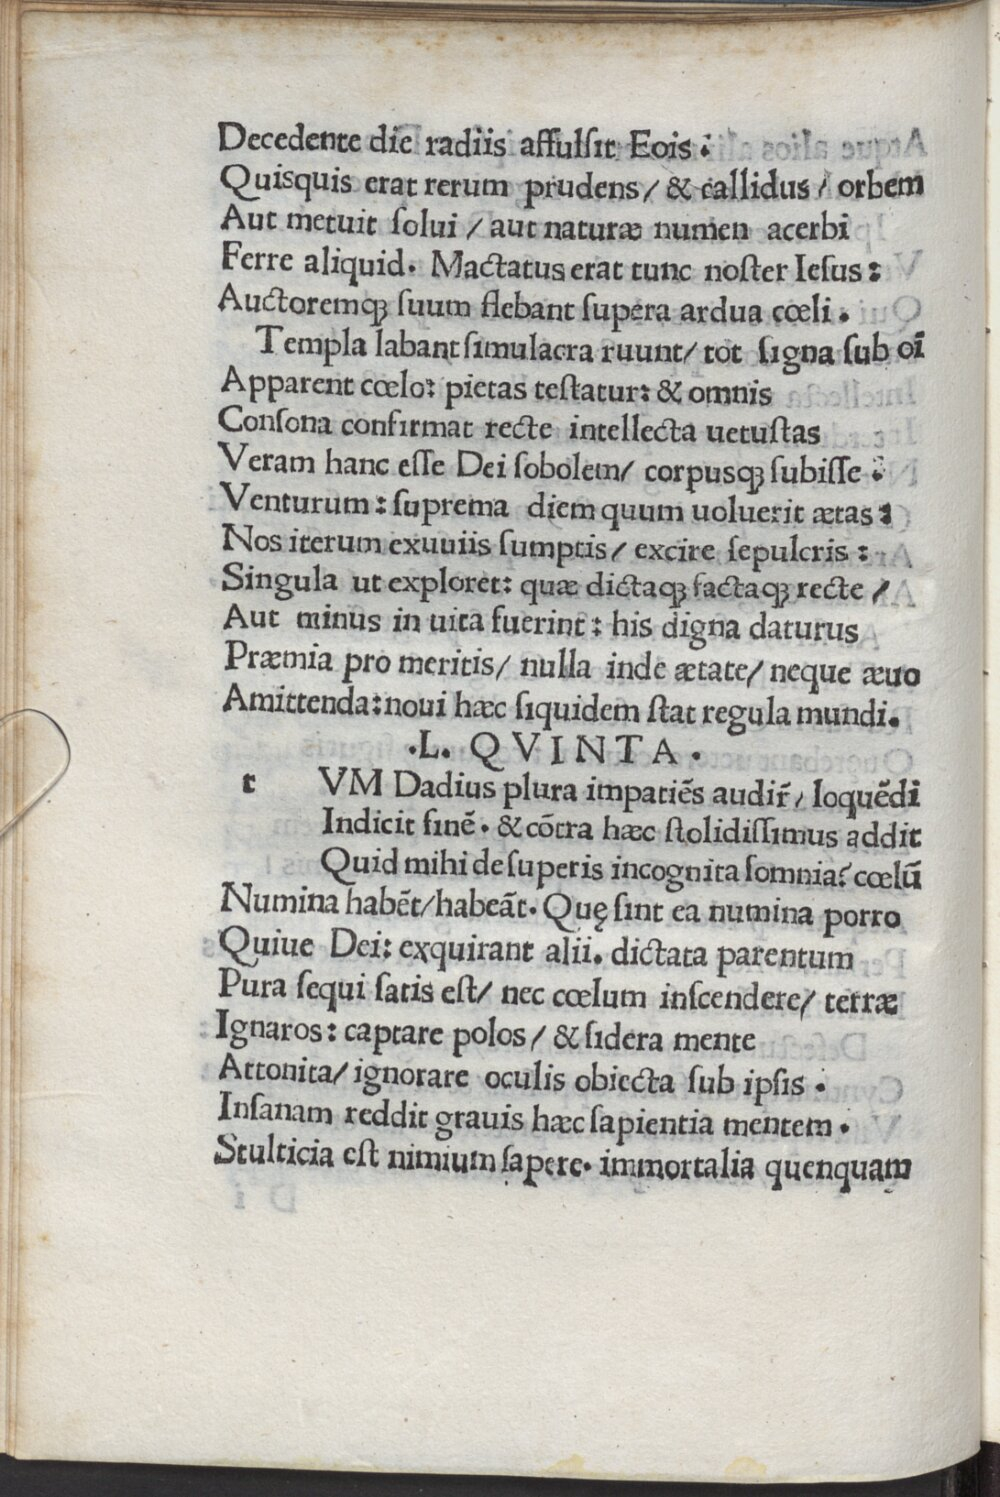 Decedente die radiis affulſit Eois:
Quisquis erat rerum prudens/ & callidus/ orbem
Aut metuit ſolui/ aut naturæ numen acerbi
Ferre aliquid. Mactatus erat tunc noſter Ieſus:
Auctoremqꝫ ſuum flebant ſupera ardua cœli.
Templa labant ſimulacra ruunt/ tot ſigna ſub oī
Apparent cœlo: pietas teſtatur: & omnis
Conſona confirmat recte intellecta uetuſtas
Veram hanc eſſe Dei ſobolem/ corpusqꝫ ſubiſſe:
Venturum: ſuprema diem quum uoluerit ætas:
Nos iterum exuuiis ſumptis/ excire ſepulcris:
Singula ut exploret: quæ dictaqꝫ factaqꝫ recte/
Aut minus in uita fuerint: his digna daturus
Præmia pro meritis/ nulla inde ætate/ neque æuo
Amittenda: noui hæc ſiquidem ſtat regula mundi.
.L. QVINTA.
t VM Dadius plura impatiēs audir̄/ loquēdi
Indicit finē. & cōtra hæc ſtolidiſſimus addit
Quid mihi de ſuperis incognita ſomnia? cœlū
Numina habēt/habeāt. Quę ſint ea numina porro
Quiue Dei: exquirant alii. dictata parentum
Pura ſequi ſatis eſt/ nec cœlum inſcendere/ terræ
Ignaros: captare polos/ & ſidera mente
Attonita/ ignorare oculis obiecta ſub ipſis.
Inſanam reddit grauis hæc ſapientia mentem.
Stulticia eſt nimium ſapere. immortalia quenquam